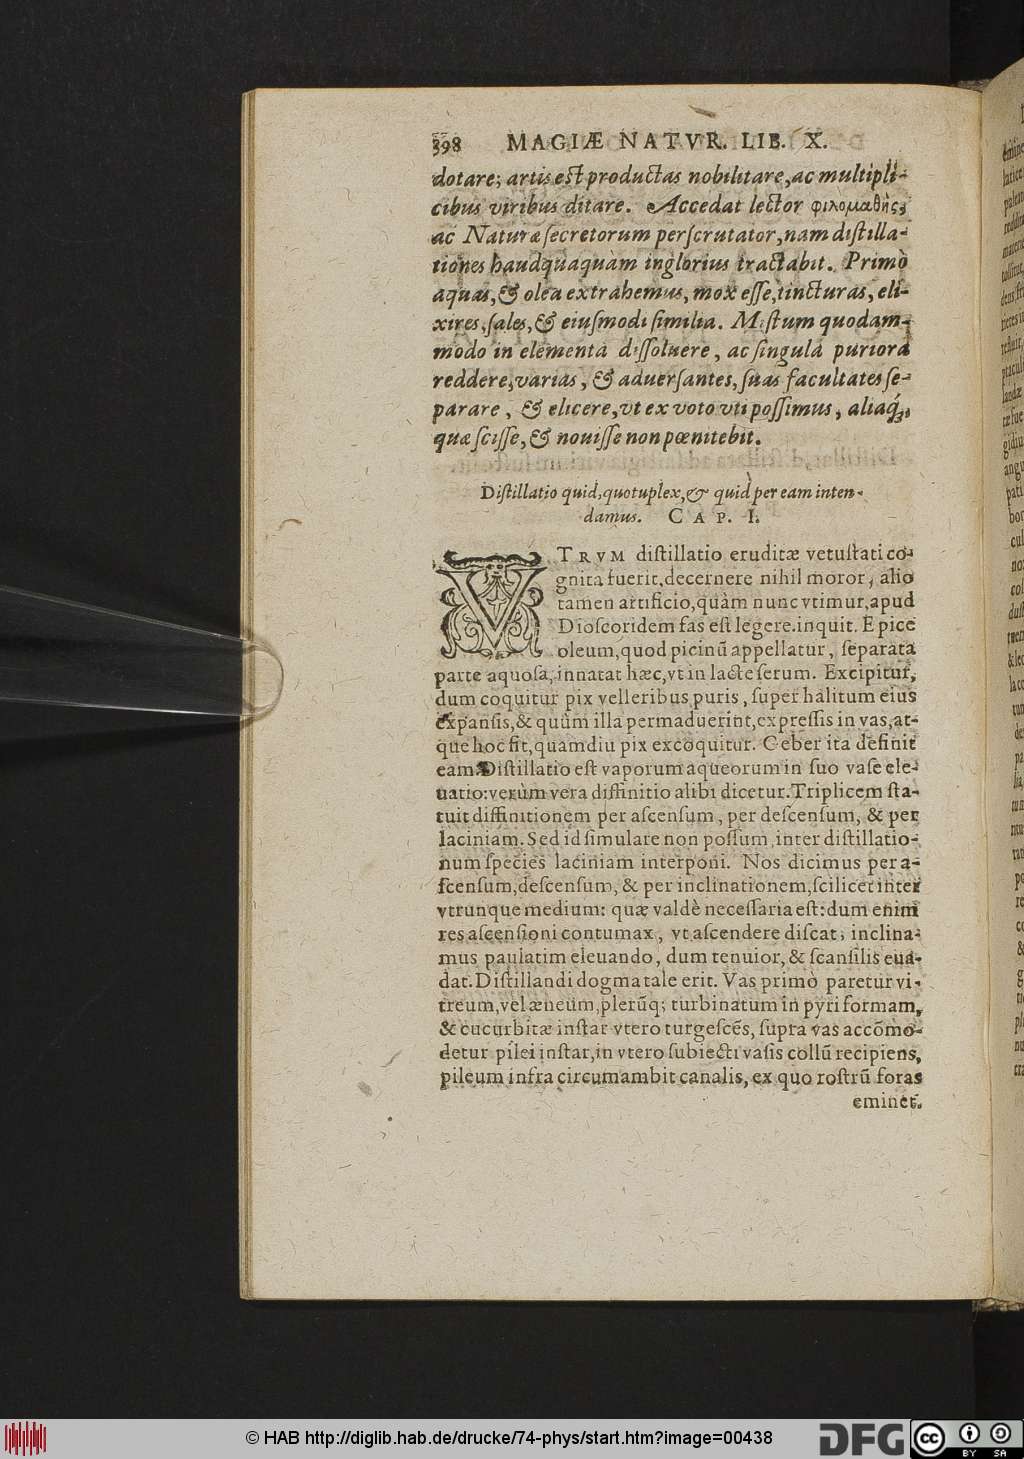 398 MAGIÆ NATVR. LIB. X.
dotare; artis est productas nobilitare, ac multipli-
cibus viribus ditare. Accedat lector φιλομαθὴς,
ac Naturæ secretorum perscrutator, nam distilla-
tiones haudquaquam inglorius tractabit. Primò
aquas, & olea extrahemus, mox esse, tincturas, eli-
xires, sales, & eiusmodi similia. Mistum quodam-
modo in elementa dissoluere, ac singula puriora
reddere, varias, & aduersantes, suas facultates se-
parare, & elicere, vt ex voto vti possimus, aliaq́;,
quæ scisse, & nouisse non pœnitebit.
Distillatio quid, quotuplex, & quid per eam inten-
damus. CAP. I.
VTRVM distillatio eruditæ vetustati co-
gnita fuerit, decernere nihil moror, alio
tamen artificio, quàm nunc vtimur, apud
Dioscoridem fas est legere. inquit. E pice
oleum, quod picinũ appellatur, separata
parte aquosa, innatat hæc, vt in lacte serum. Excipitur,
dum coquitur pix velleribus puris, super halitum eius
expansis, & quùm illa permaduerint, expressis in vas, at-
que hoc fit, quamdiu pix excoquitur. Geber ita definit
eam. Distillatio est vaporum aqueorum in suo vase ele-
uatio: verùm vera diffinitio alibi dicetur. Triplicem sta-
tuit diffinitionem per ascensum, per descensum, & per
laciniam. Sed id simulare non possum, inter distillatio-
num species laciniam interponi. Nos dicimus per a-
scensum, descensum, & per inclinationem, scilicet inter
vtrunque medium: quæ valdè necessaria est: dum enim
res ascensioni contumax, vt ascendere discat, inclina-
mus paulatim eleuando, dum tenuior, & scansilis eua-
dat. Distillandi dogma tale erit. Vas primò paretur vi-
treum, vel æneum, plerũq; turbinatum in pyri formam,
& cucurbitæ instar vtero turgescẽs, supra vas accõmo-
detur pilei instar, in vtero subiecti vasis collũ recipiens,
pileum infra circumambit canalis, ex quo rostrũ foras
eminet.
© HAB http://diglib.hab.de/drucke/74-phys/start.htm?image=00438
DFG
cc BY SA